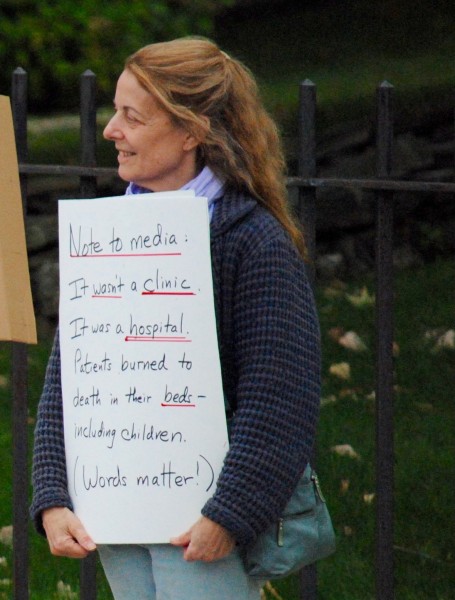 Note to media:
It wasn't a clinic.
It was a hospital.
Patients burned to
death in their beds -
including children.
(Words matter!)